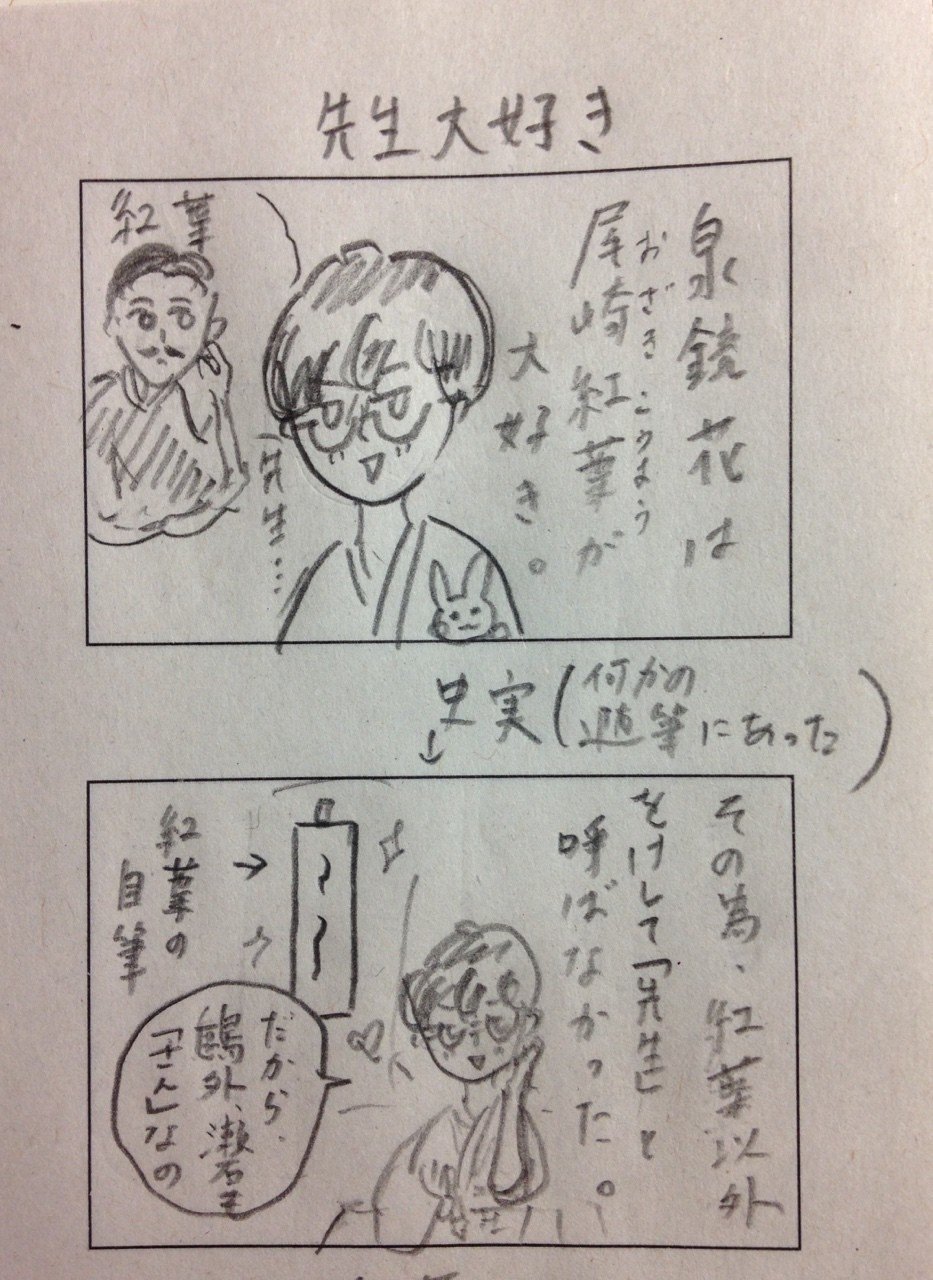 先生大好き
泉鏡花は
尾崎紅葉が
おざきこうよう
大好き。
紅葉
「先生…
史実(何かの
随筆にあった)
その為、紅葉以外
をけして「先生」と
呼ばなかった。
紅葉の
自筆
だから、
鷗外、漱石も
「さん」なの